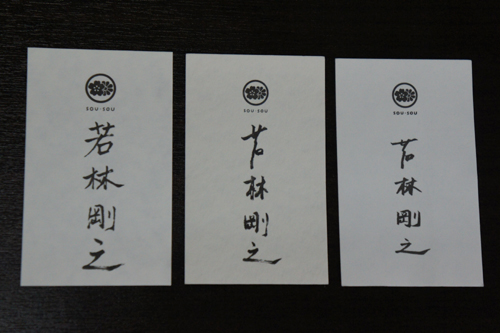 SOU·SOU
若林剛之
SOU·SOU
若林剛之
SOU·SOU
若林剛之